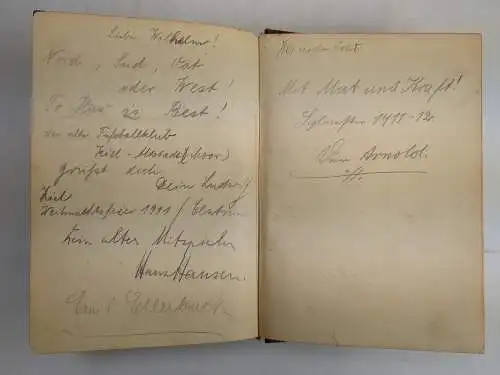 Lieber Wilhelm!
Nord, Süd, Ost
oder West!
To Hus is Best!
Der alte Fußballklub
Kiel
grüßt dich
Dein Ludwig
Kiel
Weihnachtsfeier 1911
Dein alter Mitspieler
Hans Hansen.
Ellerbrock
Mit Mut und Kraft!
Sylvester 1911-12.
Arnold.